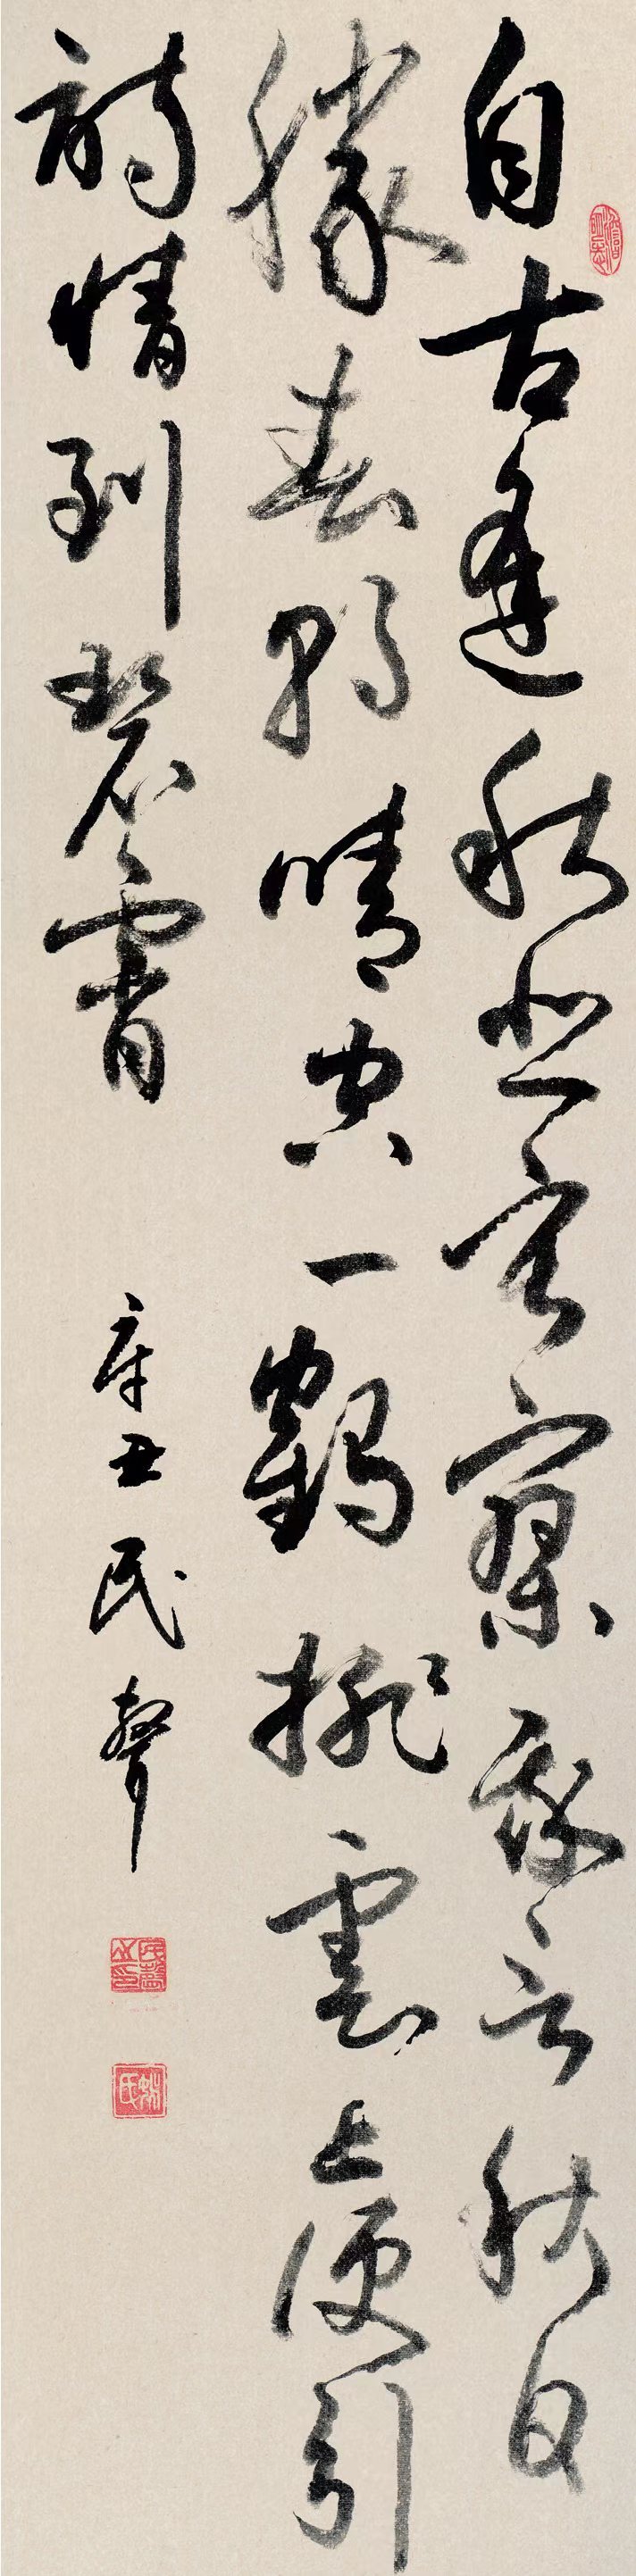 自古逢秋悲寂寥我言秋日
勝春朝晴空一鶴排雲上便引
詩情到碧霄
辛丑民聲